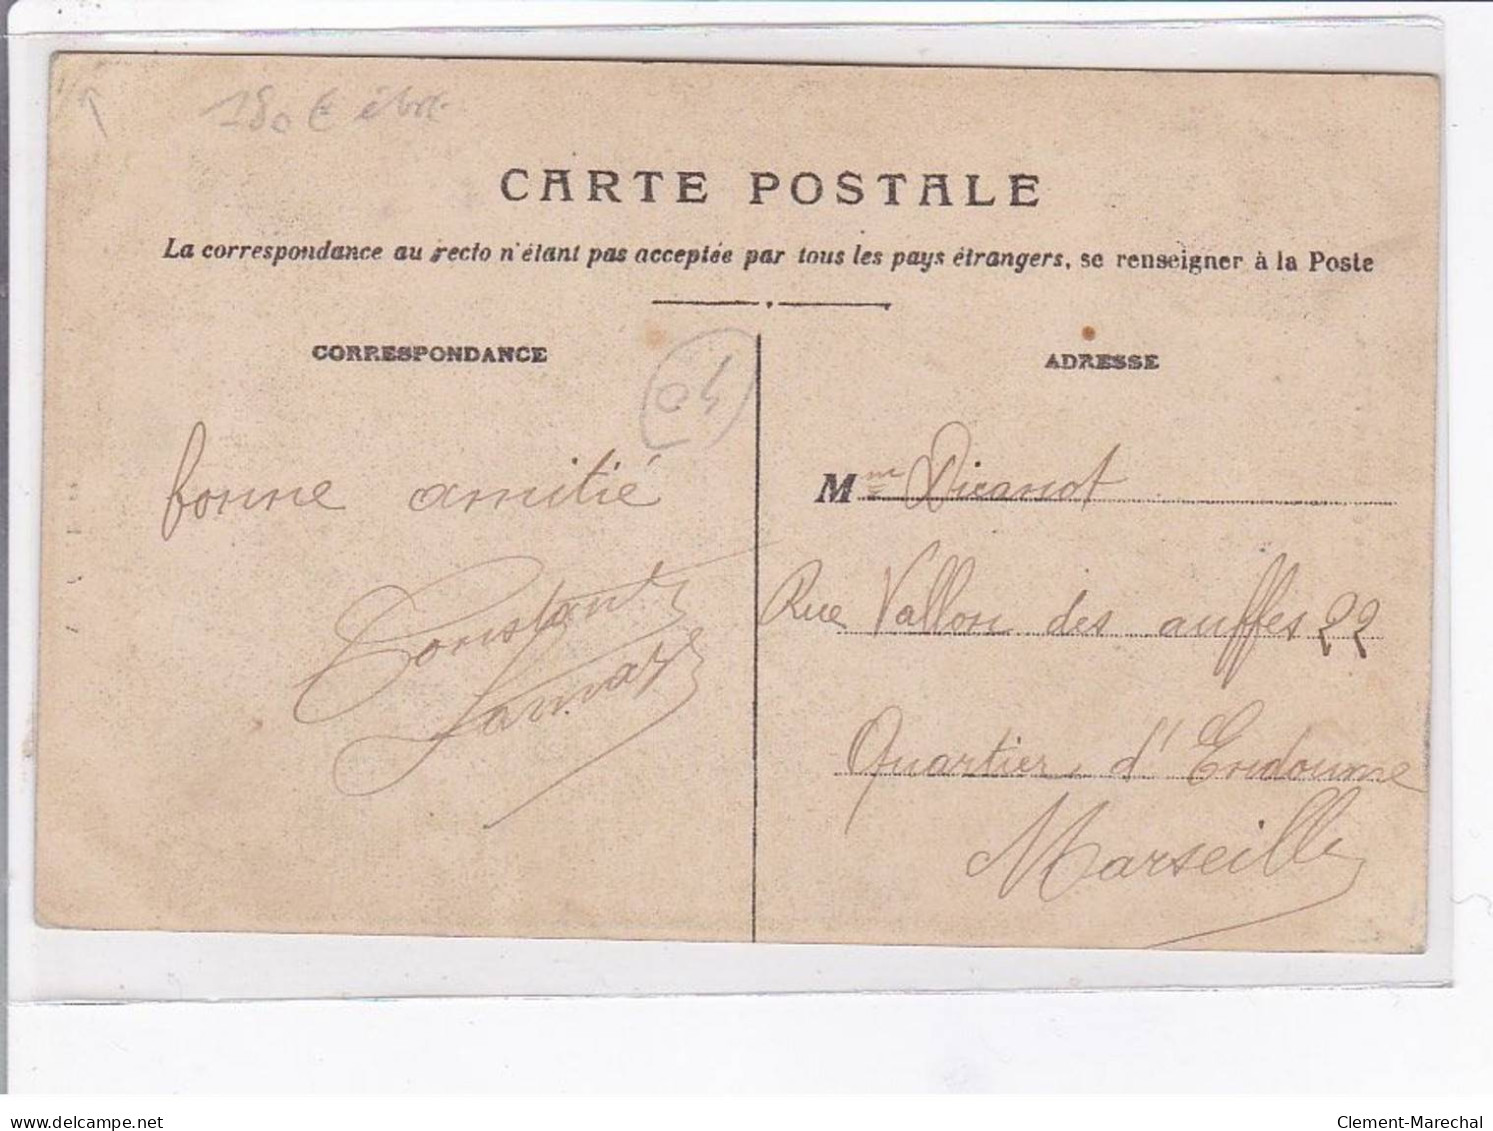 180 €
CARTE POSTALE
La correspondance au recto n'étant pas acceptée par tous les pays étrangers, se renseigner à la Poste
CORRESPONDANCE
04
bonne amitié
Constant
ADRESSE
Mme Dicanot
Rue Vallon des auffes 22
Quartier d'Endoume
Marseille
www.delcampe.net
Clement-Marechal